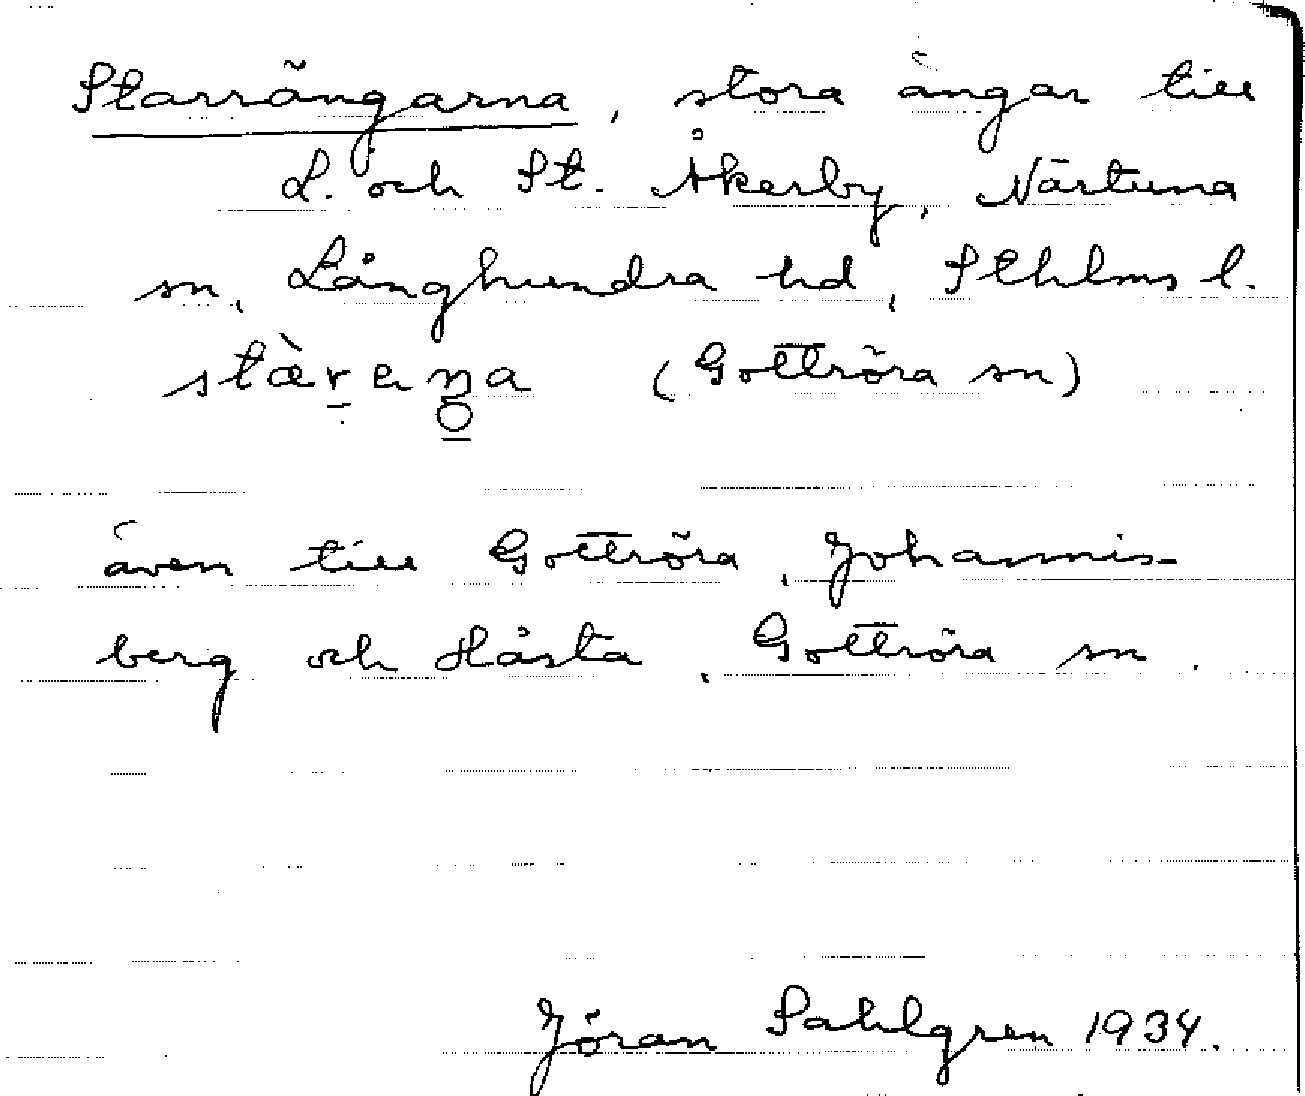 Starrängarna, stora ängar till
L. och St. Åkerby, Närtuna
sn, Långhundra hd, Sthlms l.
(Gottröra sn)
även till Gottröra, Johannis-
berg och Håsta, Gottröra sn.
Jöran Sahlgren 1934.